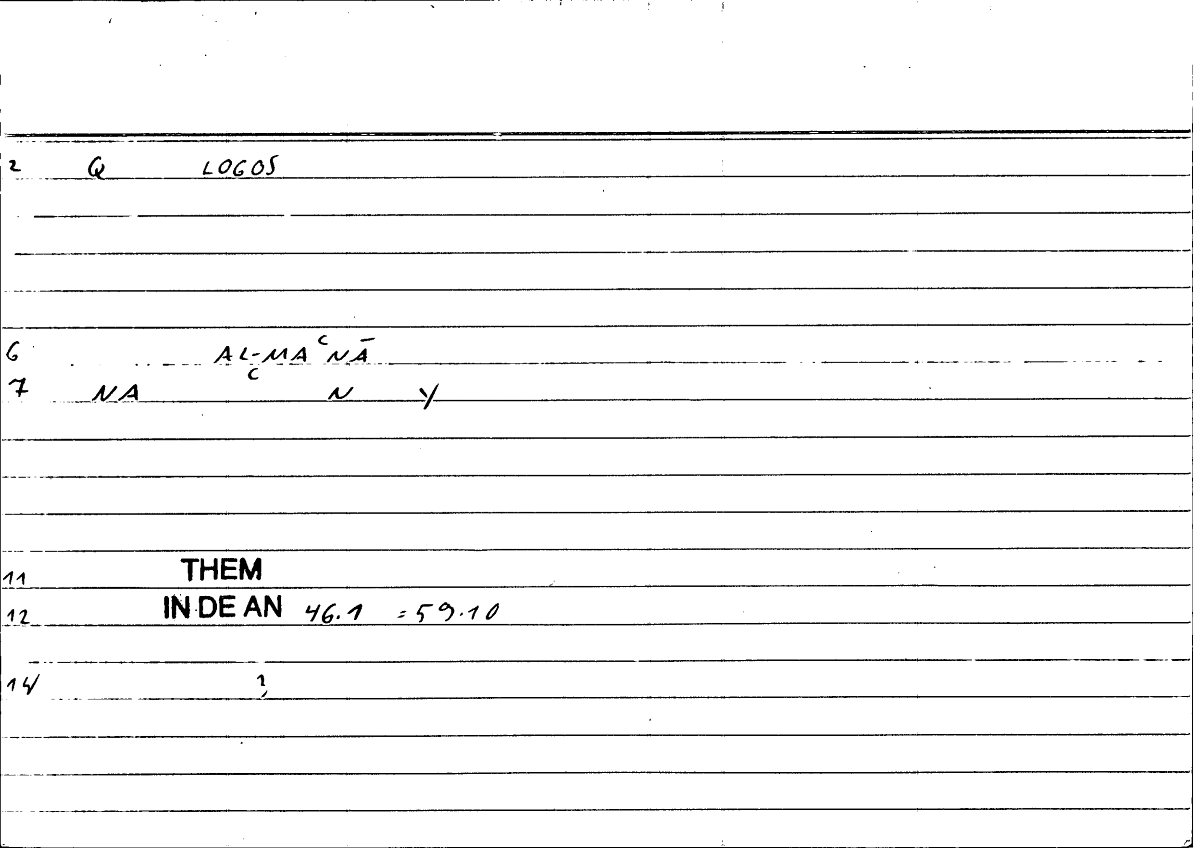 2 Q LOGOS
6 AL-MAʿNĀ
7 NA ʿ N Y
11 THEM
12 IN DE AN 46.1 = 59.10
14